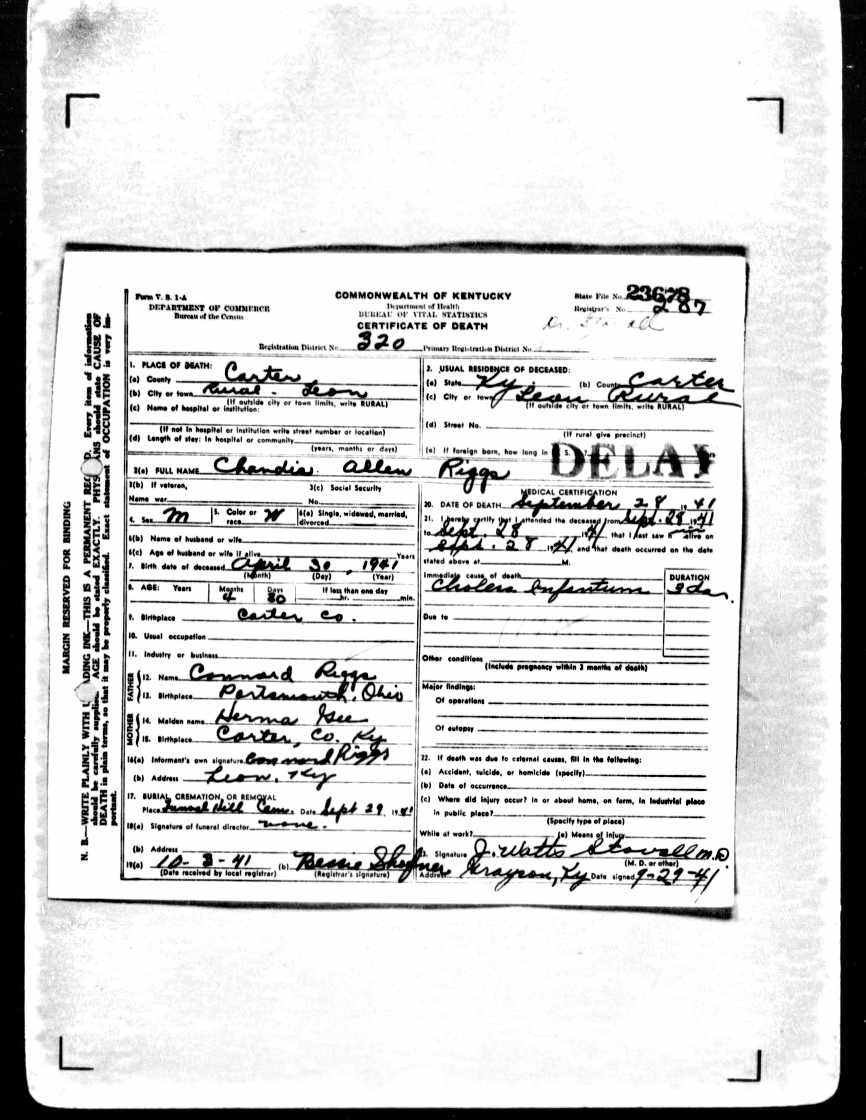 MARGIN RESERVED FOR BINDING
should be carefully supplied. AGE should be stated EXACTLY. PHYS ANS should state CAUSE OF
DEATH in plain terms, so that it may be properly classified. Exact statement of OCCUPATION is very im-
portant.
Form V. S. 1-A
DEPARTMENT OF COMMERCE
Bureau of the Census
COMMONWEALTH OF KENTUCKY
Department of Health
BUREAU OF VITAL STATISTICS
CERTIFICATE OF DEATH
State File No. 23678
Registrar's No. 287
Dr.
Registration District No. 320 Primary Registration District No.
1. PLACE OF DEATH:
(a) County Carter
(b) City or town Rural - Leon
(If outside city or town limits, write RURAL)
(c) Name of hospital or institution:
(If not in hospital or institution write street number or location)
(d) Length of stay: In hospital or community
(years, months or days)
2. USUAL RESIDENCE OF DECEASED:
(a) State Ky. (b) County Carter
(c) City or town Leon Rural
(If outside city or town limits, write RURAL)
(d) Street No.
(If rural give precinct)
(e) If foreign born, how long in U. S.?
DELAY
3(a) FULL NAME Chandis Allen Riggs
3(b) If veteran,
Name war
3(c) Social Security
No.
4. Sex M 5. Color or race W 6(a) Single, widowed, married, divorced
6(b) Name of husband or wife
6(c) Age of husband or wife if alive Years
7. Birth date of deceased April 30, 1941
(Month) (Day) (Year)
8. AGE: Years Months 4 Days 30 If less than one day hr. min.
9. Birthplace Carter Co.
10. Usual occupation
11. Industry or business
FATHER
12. Name Connard Riggs
13. Birthplace Portsmouth, Ohio
MOTHER
14. Maiden name Herma Gee
15. Birthplace Carter, Co. Ky
16(a) Informant's own signature Connard Riggs
(b) Address Leon, Ky
17. BURIAL, CREMATION, OR REMOVAL
Place Cem. Date Sept 29 1941
18(a) Signature of funeral director none.
(b) Address
19(a) 10-3-41 (b) Bessie
(Date received by local registrar) (Registrar's signature)
MEDICAL CERTIFICATION
20. DATE OF DEATH September 28 1941
21. I hereby certify that I attended the deceased from Sept. 28 1941
to Sept. 28 1941, that I last saw h alive on
Sept. 28 1941 and that death occurred on the date
stated above at M.
Immediate cause of death
Cholera Infantum
DURATION
3 da.
Due to
Other conditions
(Include pregnancy within 3 months of death)
Major findings:
Of operations
Of autopsy
22. If death was due to external causes, fill in the following:
(a) Accident, suicide, or homicide (specify)
(b) Date of occurrence
(c) Where did injury occur? In or about home, on farm, in industrial place
in public place?
(Specify type of place)
While at work? (e) Means of injury
23. Signature J. Watts Stovall M.D.
(M. D. or other)
Address Grayson, Ky Date signed 9-29-41